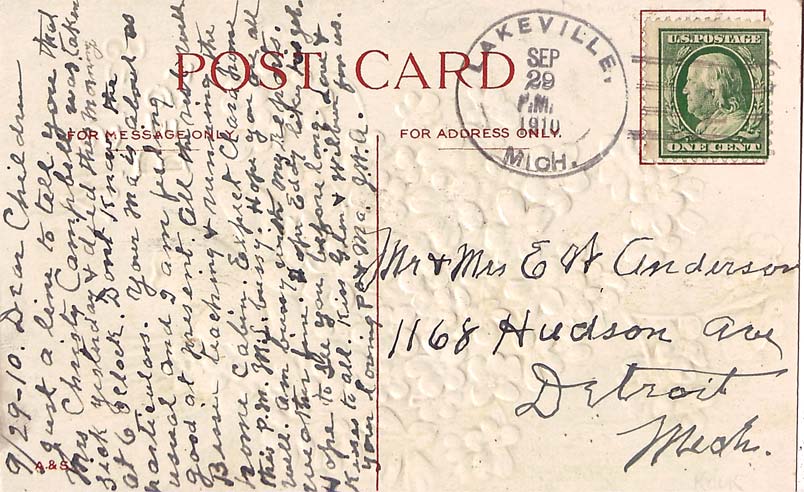 POST CARD
FOR MESSAGE ONLY.
FOR ADDRESS ONLY.
LAKEVILLE,
SEP
29
P.M.
1910
MICH.
U.S. POSTAGE
ONE CENT
9/29-10. Dear Children
Just a line to tell you that
Mrs Christy Campbell was taken
sick yesterday & died this morning
at 6 oclock. Dont Know the
particulars. Your Ma is about as
usual and I am feeling
good at present. All the rest well
Bernie teaching & running the
home cabin. Expect Charl home
this P.M. Mis bussy. Hope you are all
well. Am bussy with my
weather fine. Hope Eddy
Hope to see you before long. Love &
Kisses to all. Kiss Glen & Wilbur for us.
your loving Pa & Ma. J.H.A.
Mr & Mrs E W Anderson
1168 Hudson Ave
Detroit
Mich.
A.&S.